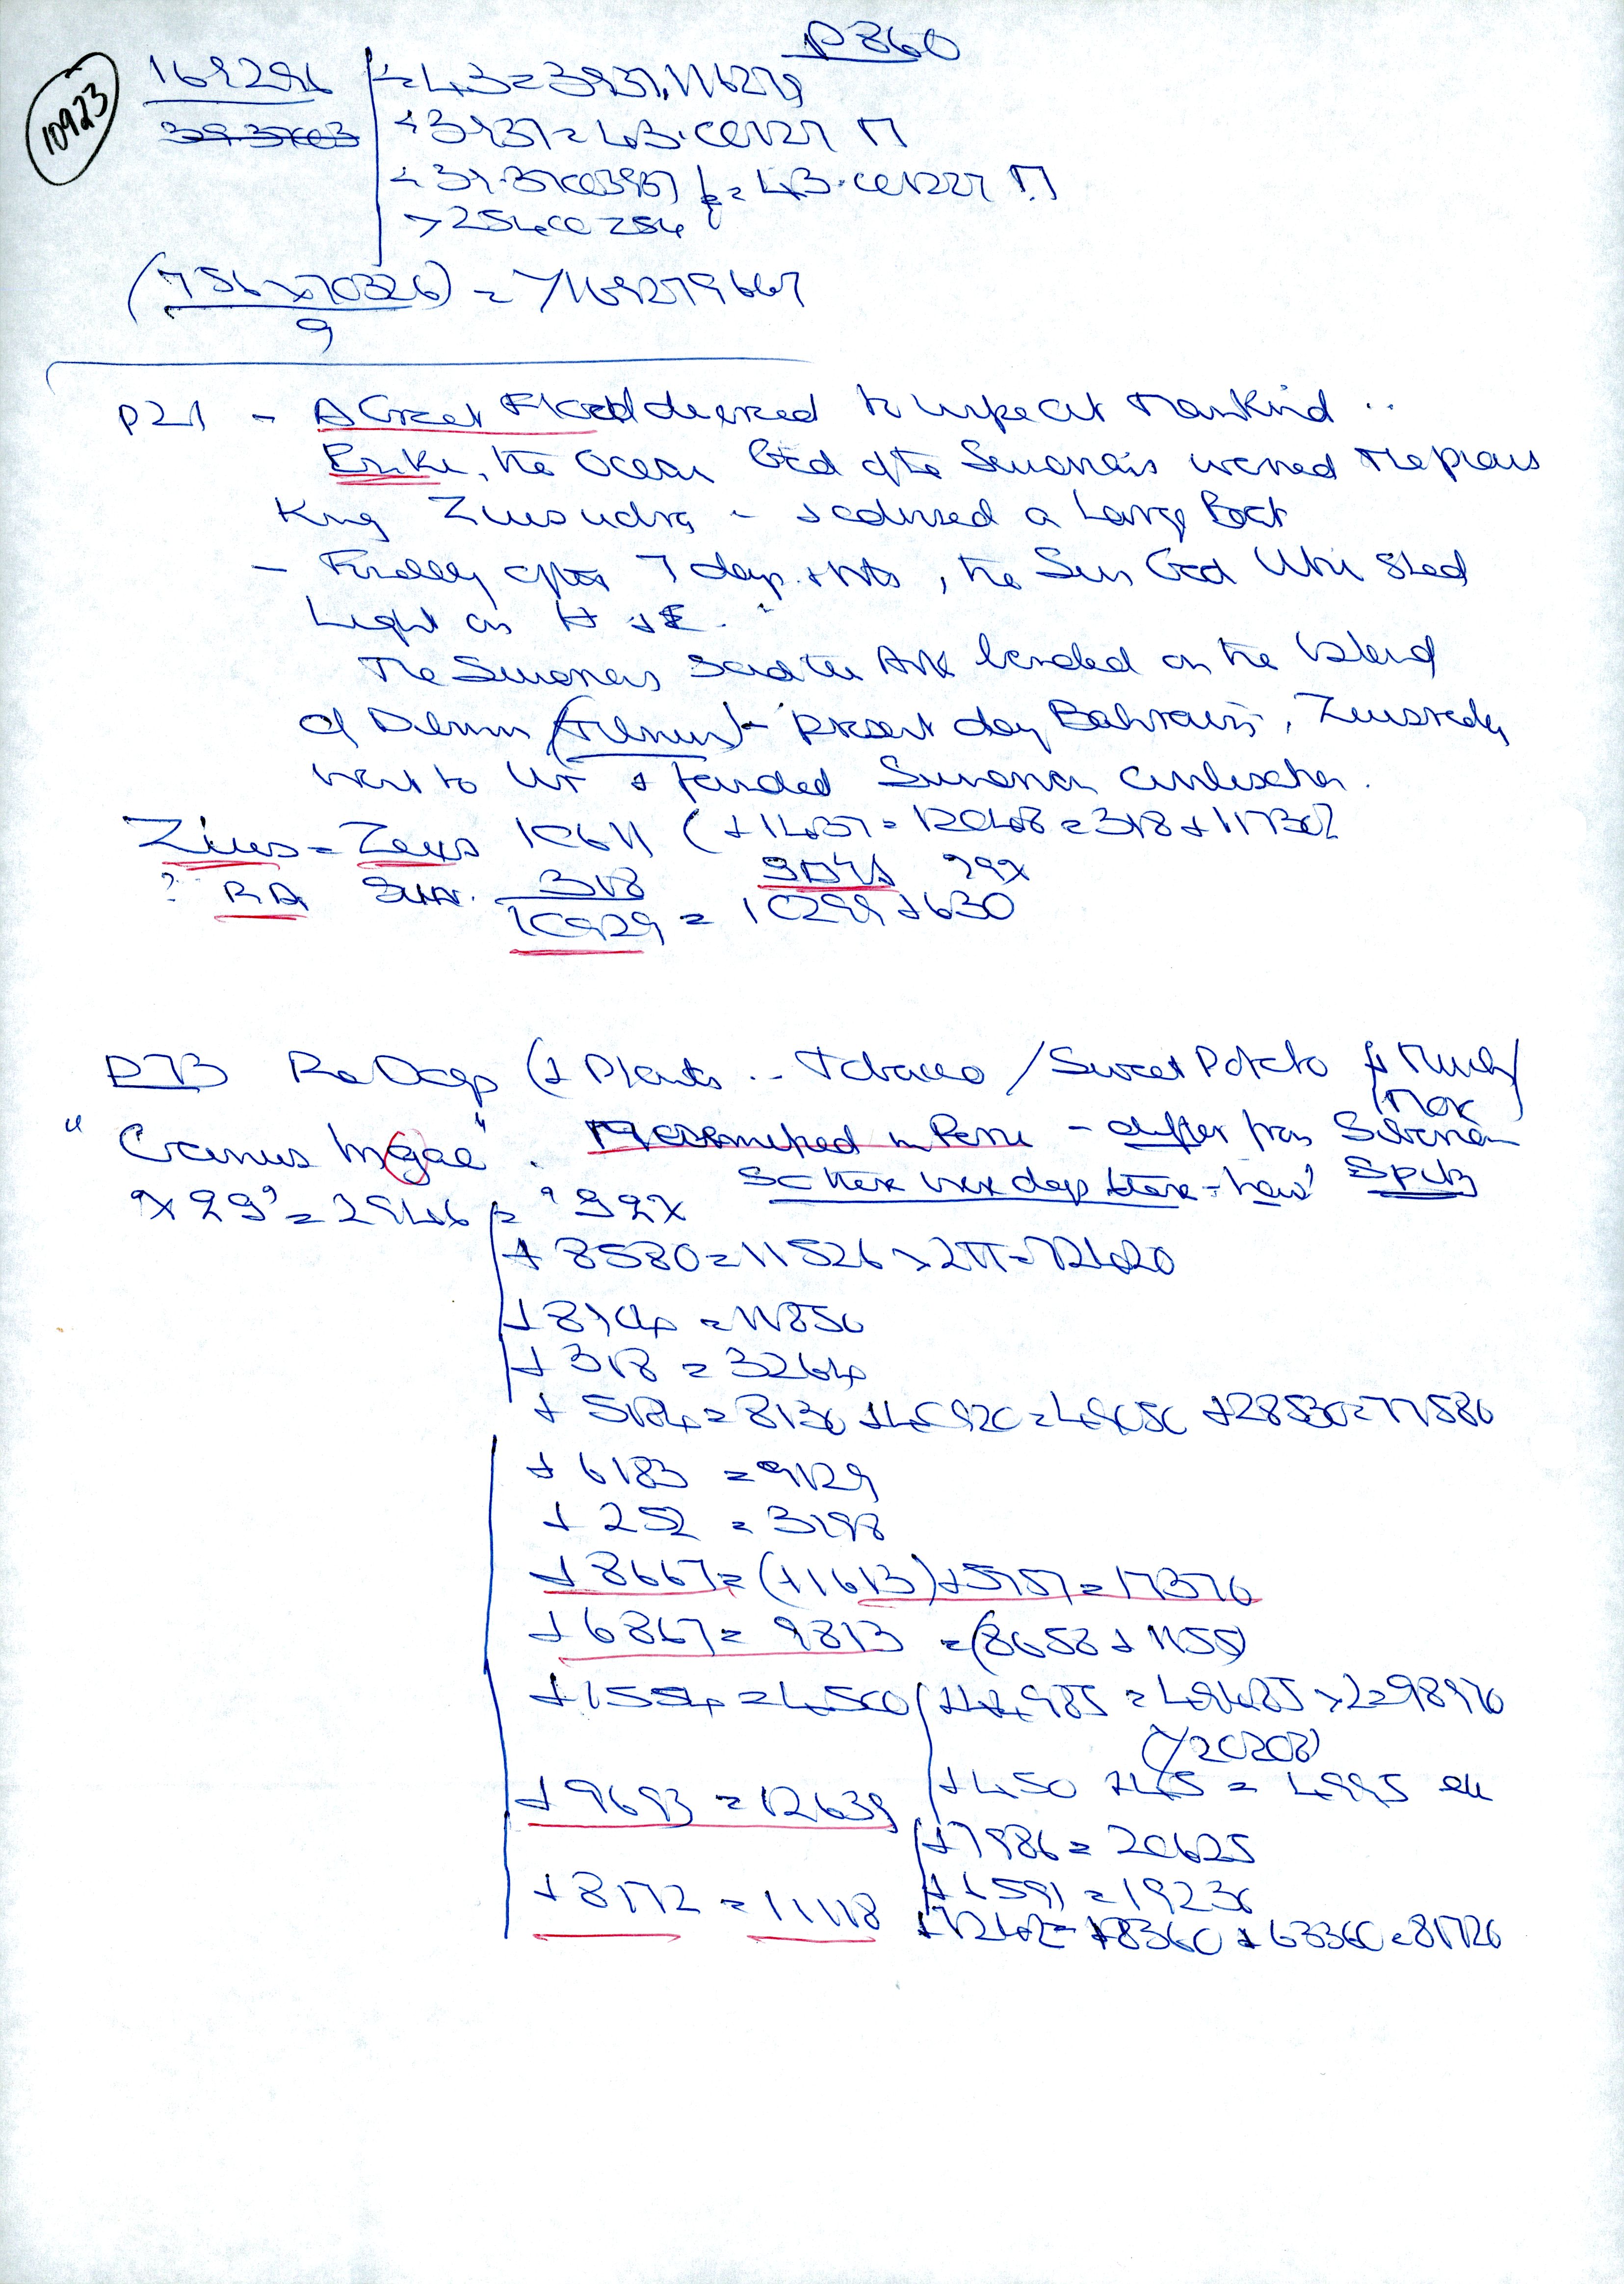 P860
10923
169296 ÷43=3937.116279
÷3937=43.001271
>254.00254
(756×70326) = >/169279667
9
P21 - A Great Flood decreed to wipe out mankind ..
Enki, the Ocean God of the Sumerians warned the pious
King Ziusudra - & advised a Large Boat
- Finally after 7 days + Nts, the Sun God Utu shed
Light on H + E.
The Sumerians said the Ark landed on the Island
of Dilmun (Tilmun) - present day Bahrain, Ziusudra
went to Ur & founded Sumerian civilisation.
Zius = Zeus 10611 (+1437 = 12048 = 318 + 11730)
? RA Sun. 318 99x
10929 = 10299 + 630
P73 Re Dogs (+ Plants .. Tobacco / Sweet Potato
"Canus Ingae" . mummified in Peru - differ from Siberian
So there were dogs there - how? Spitz
"x 29" = 2946 = 992x
+ 8580 = 11526 × 2π = 72420
+ 8904 = 11850
+ 318 = 3264
+ 5184 = 8130 + 40920 = 49050 + 28530 = 77580
+ 6183 = 9129
+ 252 = 3198
+ 8667 = (11613) + 5757 = 17370
+ 6867 = 9813 = (8658 + 1155)
+ 1554 = 4500 + 44985 = 49485 × 2 = 98970
(>/20208)
+ 450 + 45 = 4995 etc
+ 9693 = 12639
+ 7986 = 20625
+ 8172 = 11118
+ 6591 = 19230
+ 7242 = 18360 + 63360 = 81720